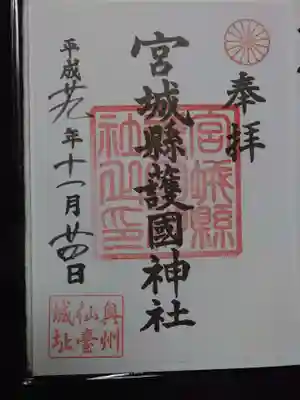 奉拝
宮城縣護國神社
平成廿九年十一月廿四日
宮城縣
社之印
奥州
仙臺
城址